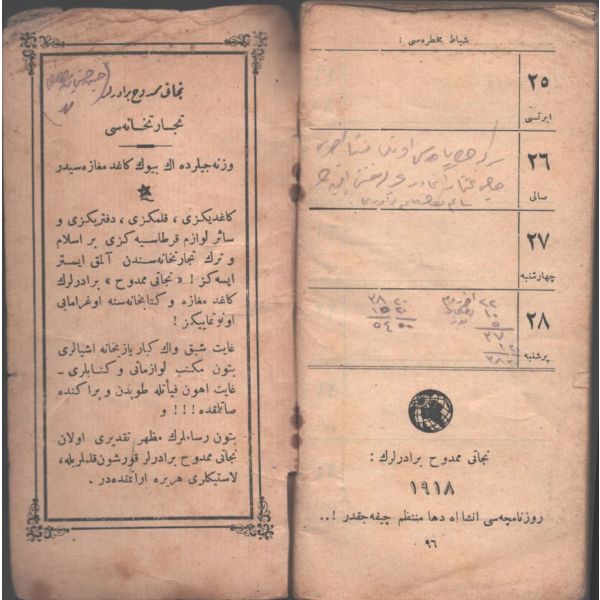 شباط مخطره‌سی :
٢٥
ایرتسی
٢٦
صالی
٢٧
چهارشنبه
٢٨
پرشنبه
نجاتی ممدوح برادرلرك :
١٩١٨
روزنامچه‌سی انشاالله دها منتظم چیقه‌جقدر !..
٩٦
نجاتی ممدوح برادرلر
تجارتخانه‌سی
وزنه‌جیلرده اك بیوك كاغد مغازه‌سیدر
كاغدیكزی ، قلمكزی ، دفتریكزی و
سائر لوازم قرطاسیه‌كزی بر اسلام
و ترك تجارتخانه‌سندن آلمق ایستر
ایسه‌كز ! « نجاتی ممدوح » برادرلرك
كاغد مغازه و كتابخانه‌سنه اوغرامایی
اونوتماییكز !
غایت شیق واك كبار یازیخانه اشیالری
بتون مكتب لوازماتی و كتابلری ـ
غایت اهون فیأتله طوپدن و پراكنده
صاتلمقده !!! و
بتون رساملرك مظهر تقدیری اولان
نجاتی ممدوح برادرلر قورشون قلملریله،
لاستیكلری هر یرده ارانمقده‌در .